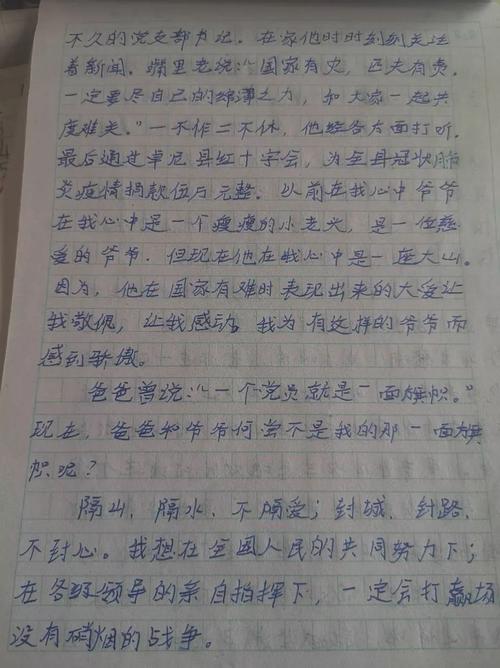 不久的党支部书记。在家他时时刻刻关注
着新闻。嘴里老说:“国家有灾,匹夫有责。
一定要尽自己的绵薄之力,和大家一起共
度难关。”一不作二不休,他经各方面打听,
最后通过卓尼县红十字会,为全县冠状肺
炎疫情捐款伍万元整。以前在我心中爷爷
在我心中是一个瘦瘦的小老头,是一位慈
爱的爷爷。但现在他在我心中是一座大山。
因为,他在国家有难时表现出来的大爱让
我敬佩,让我感动,我为有这样的爷爷而
感到骄傲。
爸爸曾说:“一个党员就是一面旗帜。”
现在,爸爸和爷爷何尝不是我的那一面旗
帜呢?
隔山,隔水,不隔爱;封城,封路,
不封心。我想在全国人民的共同努力下;
在各级领导的亲自指挥下,一定会打赢场
没有硝烟的战争。